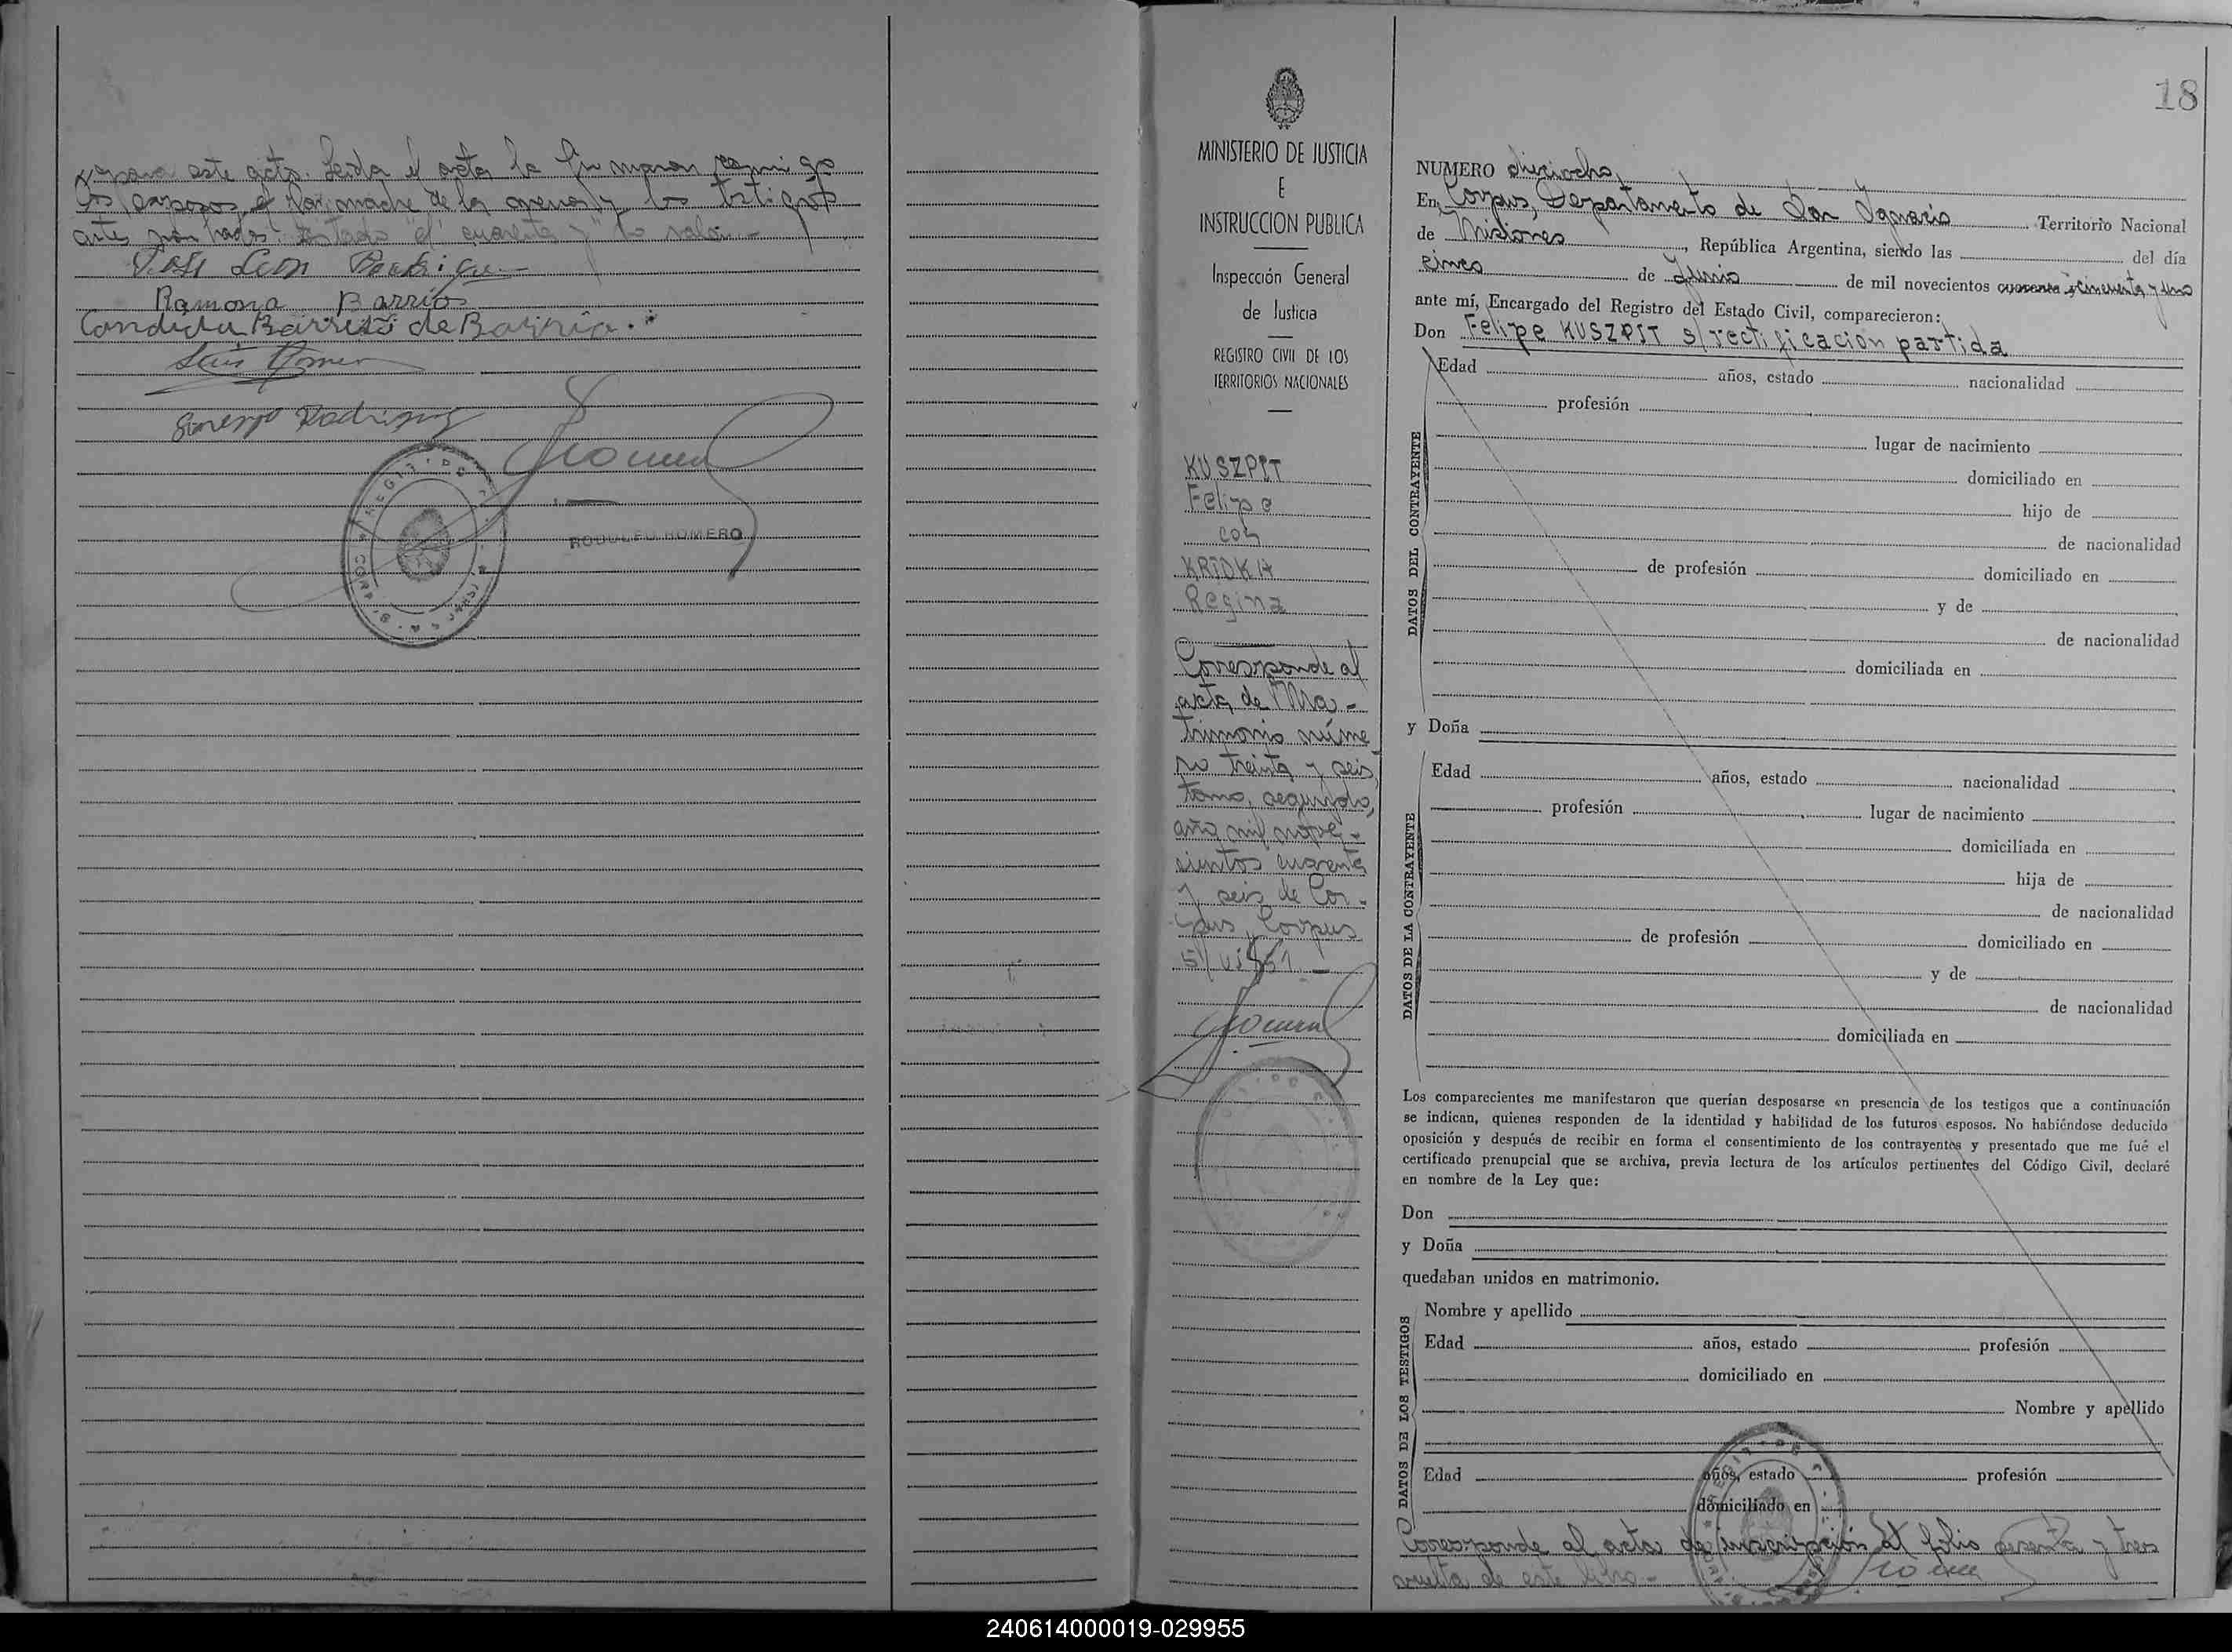 para este acto. Leida el acta la firmaron conmigo
los esposos, el la madre de la menor y los testigos
antes nombrados. Testado el "cuarenta y" no vale.-
José Leon Rodrigue
Ramona Barrios
Candida Barreto de Barrio.
Luis Romer
Rodriguez
RODOLFO ROMERO
MINISTERIO DE JUSTICIA
E
INSTRUCCION PUBLICA
Inspección General
de Justicia
REGISTRO CIVIL DE LOS
TERRITORIOS NACIONALES
KUSZPIT
Felipe
con
KRIDKA
Regina
Corresponde al
acta de Ma-
trimonio núme-
ro treinta y seis,
tomo, segundo,
año mil nove-
cientos cuarenta
y seis de Cor-
pus, Corpus
5/VI/51.-
18
NUMERO dieciocho,
En Corpus, Departamento de San Ignacio Territorio Nacional
de Misiones, República Argentina, siendo las del día
cinco de Junio de mil novecientos cuarenta y cincuenta y uno
ante mí, Encargado del Registro del Estado Civil, comparecieron:
Don Felipe KUSZPIT s/rectificación partida
DATOS DEL CONTRAYENTE
Edad años, estado nacionalidad
profesión
lugar de nacimiento
domiciliado en
hijo de
de nacionalidad
de profesión domiciliado en
y de
de nacionalidad
domiciliada en
y Doña
DATOS DE LA CONTRAYENTE
Edad años, estado nacionalidad
profesión lugar de nacimiento
domiciliada en
hija de
de nacionalidad
de profesión domiciliado en
y de
de nacionalidad
domiciliada en
Los comparecientes me manifestaron que querían desposarse en presencia de los testigos que a continuación
se indican, quienes responden de la identidad y habilidad de los futuros esposos. No habiéndose deducido
oposición y después de recibir en forma el consentimiento de los contrayentes y presentado que me fué el
certificado prenupcial que se archiva, previa lectura de los artículos pertinentes del Código Civil, declaré
en nombre de la Ley que:
Don
y Doña
quedaban unidos en matrimonio.
DATOS DE LOS TESTIGOS
Nombre y apellido
Edad años, estado profesión
domiciliado en
Nombre y apellido
Edad años, estado profesión
domiciliado en
Corresponde al acta de inscripción al folio sesenta y tres
vuelta de este libro.-
240614000019-029955